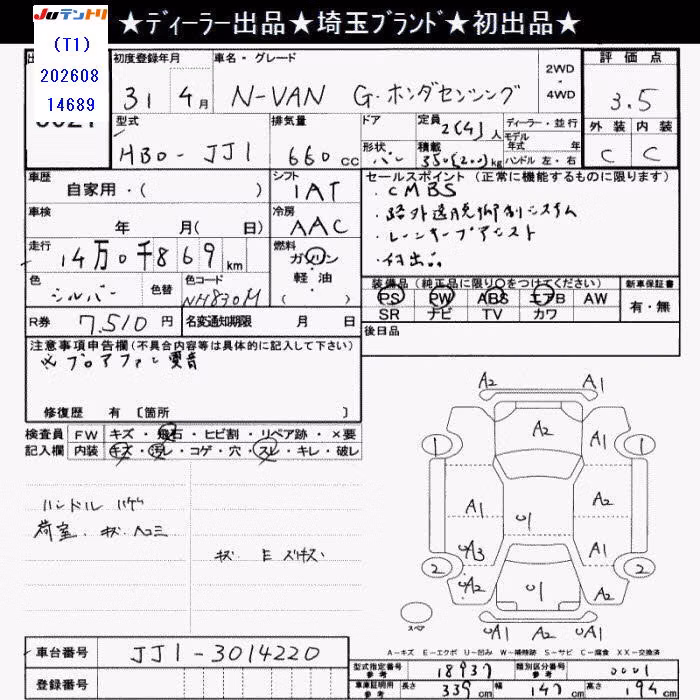 Juテントリ
(T1)
202608
14689
★ディーラー出品★埼玉ブランド★初出品★
初度登録年月
31 4月
車名・グレード
N-VAN G・ホンダセンシング
2WD
・
4WD
評価点
3.5
外装 内装
C C
型式
HBD-JJ1
排気量
660 cc
ドア
形状
バン
定員 2(4)人
積載 350(200)kg
ディーラー・並行
モデル
年式 年
ハンドル 左・右
車歴
自家用・( )
シフト
1AT
車検
年 月( 日)
冷房
AAC
走行
14万0千869km
燃料
ガソリン
・
軽油
( )
色
シルバー
色替
色コード
NH830M
R券 7,510円
名変通知期限 月 日
セールスポイント (正常に機能するものに限ります)
・CMBS
・路外逸脱抑制システム
・レーンキープアシスト
・初出品
装備品(純正品に限り○をつけてください)
PS PW ABS エアB AW
SR ナビ TV カワ
新車保証書
有・無
後日品
注意事項申告欄(不具合内容等は具体的に記入して下さい)
※ブロアファン異音
修復歴 有 [箇所 ]
検査員
記入欄
FW キズ・飛石・ヒビ割・リペア跡・×要
内装 キズ・汚レ・コゲ・穴・スレ・キレ・破レ
ハンドル ハゲ
荷室 キズ ヘコミ
キズ E スリキズ
A2 A1
A2
1 1
A1 A2
U1
UA3 A1
2 2
UA2 A2
U1
UA1 UA1
スペア
A-キズ E-エクボ U-凹み W-補修跡 S-サビ C-腐食 XX-交換済
車台番号 JJ1-3014220
登録番号
型式指定番号
参考
18937
類別区分番号
参考
0001
車庫証明用
参考
長さ 339cm 幅 147cm 高さ 194cm